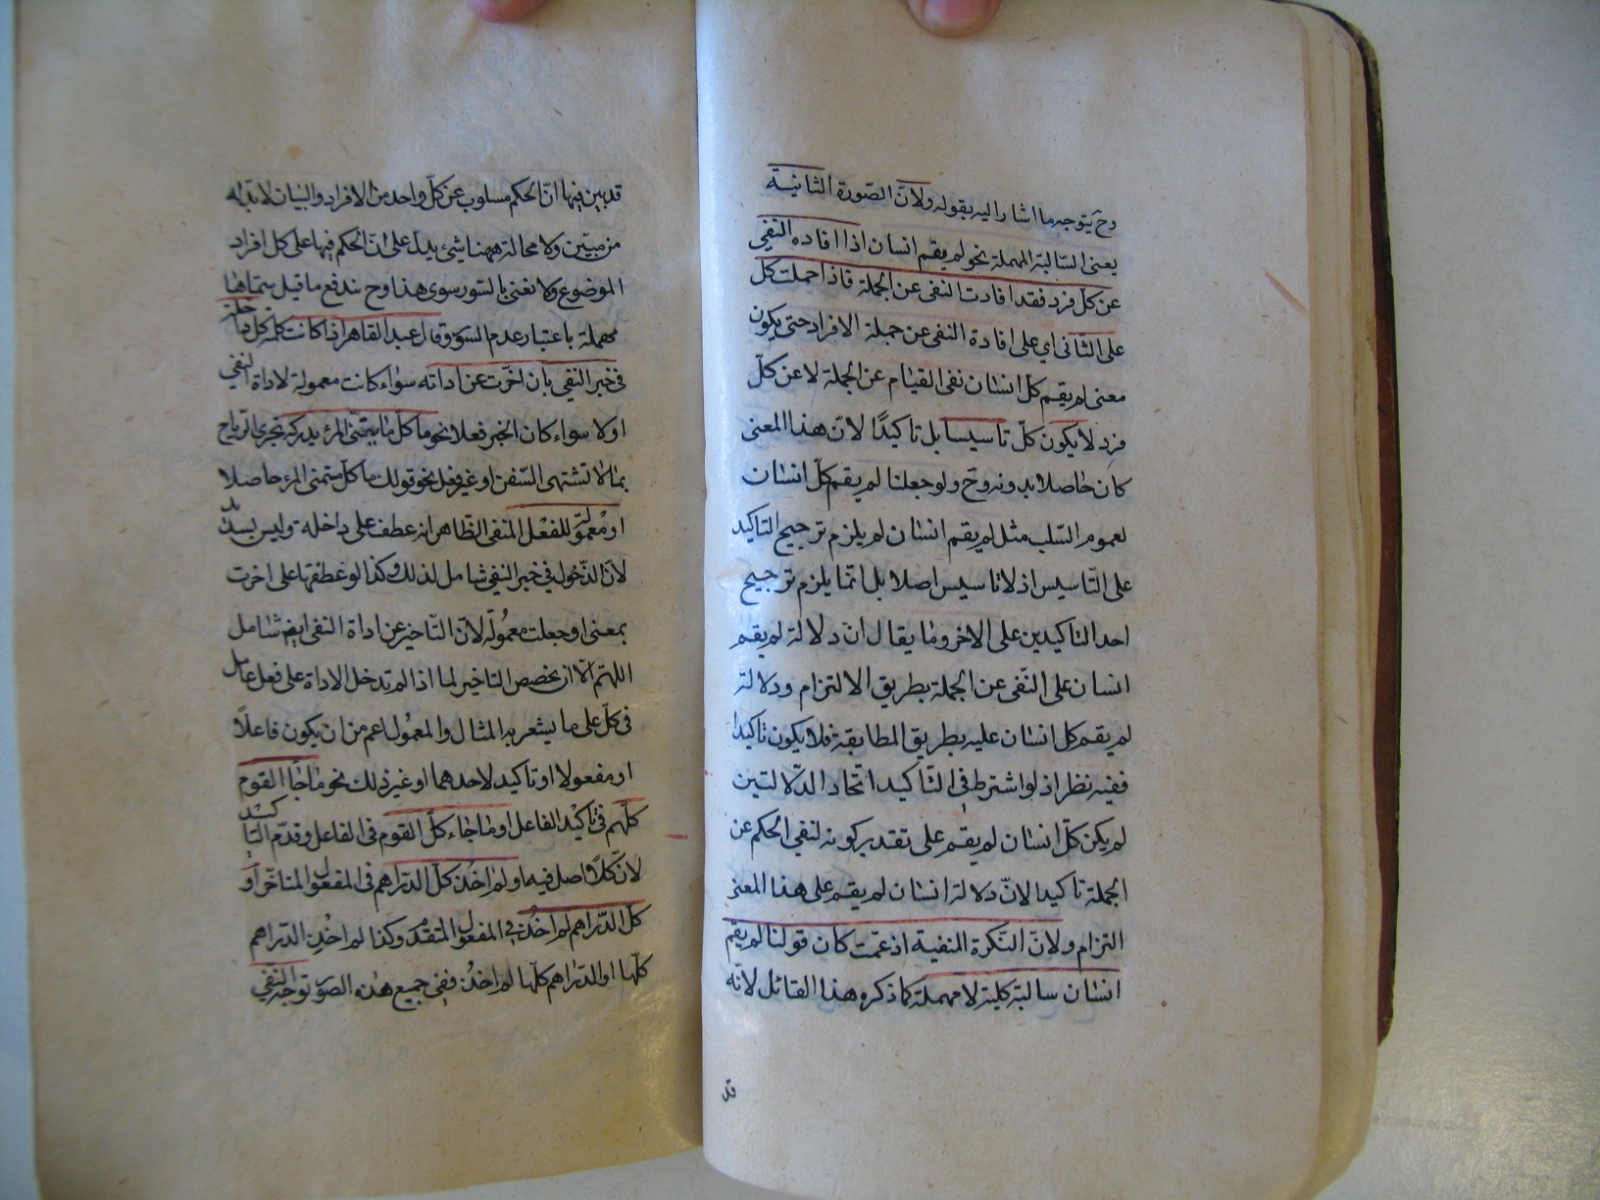 وح يتوجه ما اشار اليه بقوله ولانّ الصّورة الثانية
يعنى السّالبة المهملة نحو لم يقم انسان اذا افاده النفى
عن كلّ فرد فقد افادت النفى عن الجملة فاذا حملت كل
على الثانى اي على افادة النفى عن جملة الافراد حتى يكون
معنى لم يقم كلّ انسان نفى القيام عن الجملة لا عن كلّ
فرد لا يكون كلّ تأسيسا بل تاكيدًا لانّ هذا المعنى
كان حاصلا بدونه وح ولو جعلنا لم يقم كلّ انسان
لعموم السّلب مثل لم يقم انسان لم يلزم ترجيح التاكيد
على التّاسيس اذ لا تاسيس اصلا بل انّما يلزم ترجيح
احد التاكيدين على الاخر وما يقال انّ دلالة لم يقم
انسان على النّفى عن الجملة بطريق الالتزام ودلالة
لم يقم كل انسان عليه بطريق المطابقة فلا يكون تاكيدا
ففيه نظر اذ لو اشترط فى التّاكيد اتّحاد الدّلالتين
لم يكن كلّ انسان لم يقم على تقدير كونه لنفى الحكم عن
الجملة تاكيدا لانّ دلالة انسان لم يقم على هذا المعنى
التزام ولانّ النّكرة المنفية اذ عمّت كان قولنا لم يقم
انسان سالبة كلية لا مهملة كما ذكره هذا القائل لانّه
قد
قد بين فيها انّ الحكم مسلوب عن كلّ واحد من الافراد والبيان لا بدّ له
من مبيّن ولا محالة ههنا شئ يدلّ على انّ الحكم فيها على كل افراد
الموضوع ولا نعنى بالسّور سوى هذا وح يندفع ما قيل سمّاها
مهملة باعتبار عدم السّور وقال عبد القاهر اذا كانت كلمة كل داخلة
فى خبر النفى بان اخّرت عن اداته سواء كانت معمولة لاداة النفي
اولا سواء كان الخبر فعلا نحو ما كلّ ما يتمنّى المرء يدركه تجرى الرّياح
بما لا تشتهى السّفن او غير فعل نحو قولك ما كلّ متمنى المرء حاصلا
او معمولة للفعل المنفى الظّاهر انه عطف على داخله وليس بسديد
لانّ الدّخول فى خبر النفى شامل لذلك وكذا لو عطفتها على اخرت
بمعنى او جعلت معمولة لانّ التّاخير عن اداة النفى ايضا شامل
اللهمّ الّا ان يخصص التاخير بما اذا لم تدخل الاداة على فعل عامل
فى كلّ على ما يشعر به المثال والمعمول اعم من ان يكون فاعلًا
او مفعولا او تاكيد لاحدهما او غير ذلك نحو ما جاء القوم
كلّهم فى تاكيد الفاعل او ما جاء كلّ القوم فى الفاعل وقدّم التاكيد
لانّ كلًّا اصل فيه او لم اخذ كلّ الدّراهم فى المفعول المتاخّر او
كلّ الدّراهم لم اخذ فى المفعول المتقدّم وكذا لم اخذ الدّراهم
كلّها او الدّراهم كلّها لم اخذ ففي جميع هذه الصّور توجه النّفى